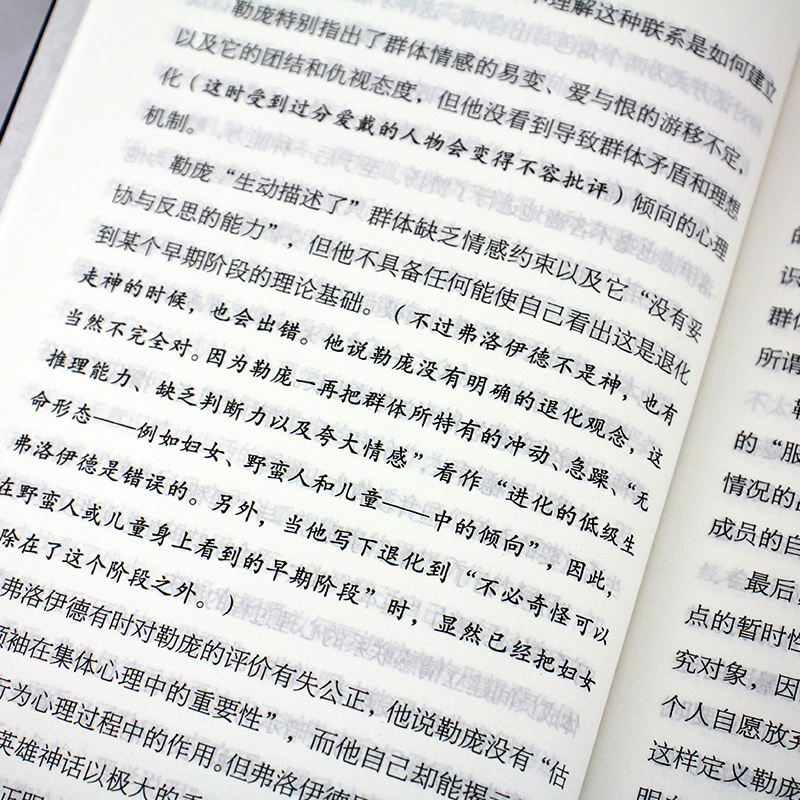 理解这种联系是如何建立
勒庞特别指出了群体情感的易变、爱与恨的游移不定,
以及它的团结和仇视态度,但他没看到导致群体矛盾和理想
化(这时受到过分爱戴的人物会变得不容批评)倾向的心理
机制。
勒庞“生动描述了”群体缺乏情感约束以及它“没有妥
协与反思的能力”,但他不具备任何能使自己看出这是退化
到某个早期阶段的理论基础。(不过弗洛伊德不是神,也有
走神的时候,也会出错。他说勒庞没有明确的退化观念,这
当然不完全对。因为勒庞一再把群体所特有的冲动、急躁、“无
推理能力、缺乏判断力以及夸大情感”看作“进化的低级生
命形态——例如妇女、野蛮人和儿童——中的倾向”,因此,
弗洛伊德是错误的。另外,当他写下退化到“不必奇怪可以
在野蛮人或儿童身上看到的早期阶段”时,显然已经把妇女
除在了这个阶段之外。)
弗洛伊德有时对勒庞的评价有失公正,他说勒庞没有“估
领袖在集体心理中的重要性”,而他自己却能揭示
行为心理过程中的作用。但弗洛伊德
英雄神话以极大的
的
识
群体
所谓
勒
的“服
情况的
成员的自
最后,
点的暂时性
究对象,因
个人自愿放弃
这样定义勒庞